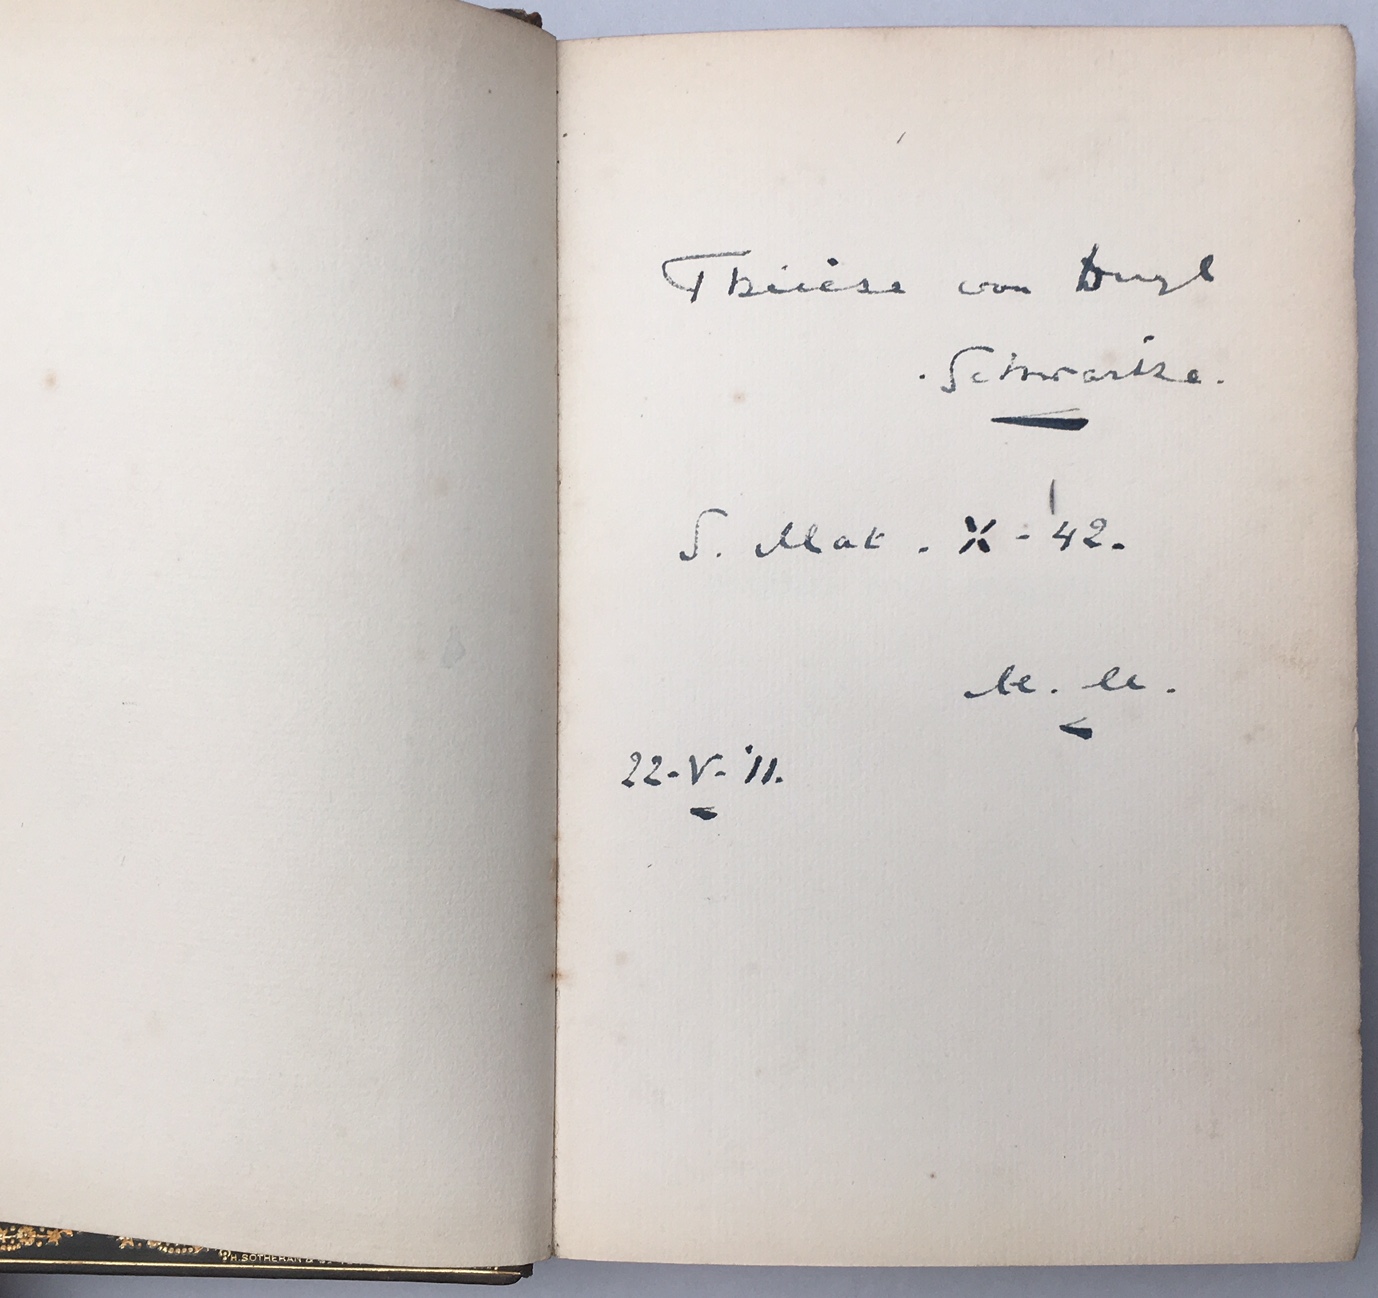 Thérèse van Duyl
Schwartze.
S. Mat. X - 42.
M. M.
22-V-'11.
H. SOTHERAN & Co